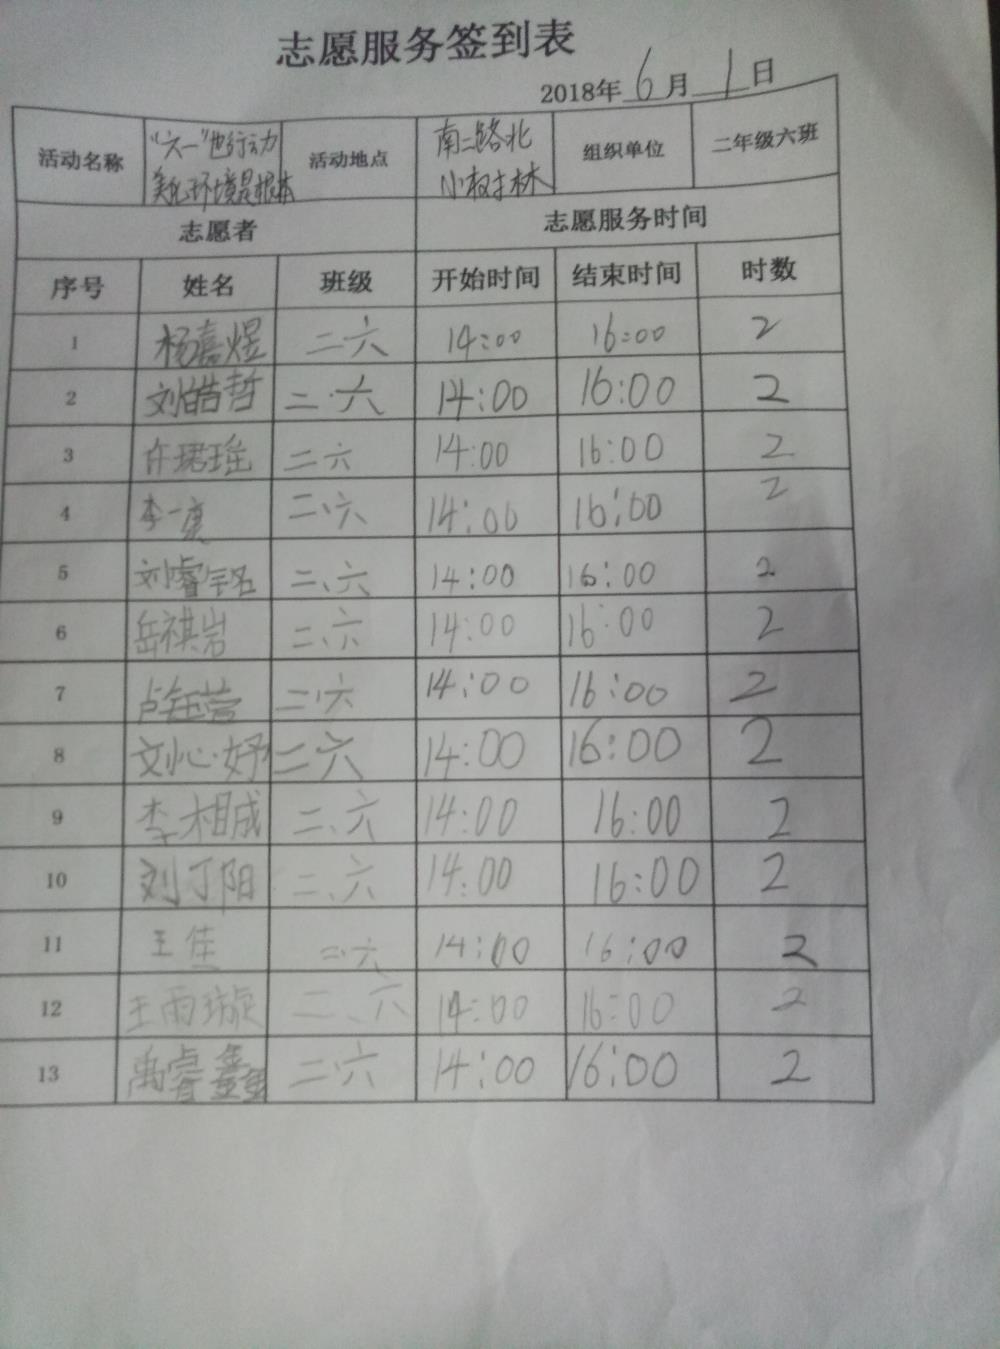 志愿服务签到表
2018年6月1日
活动名称 "六一"也行动力 美化环境是根本 活动地点 南二路北 小树林 组织单位 二年级六班
志愿者 志愿服务时间
序号 姓名 班级 开始时间 结束时间 时数
1 杨嘉煜 二六 14:00 16:00 2
2 刘皓哲 二·六 14:00 16:00 2
3 许珺瑶 二六 14:00 16:00 2
4 李一 二、六 14:00 16:00 2
5 刘睿铭 二、六 14:00 16:00 2
6 岳祺岩 二、六 14:00 16:00 2
7 卢钰营 二·六 14:00 16:00 2
8 刘心妤 二六 14:00 16:00 2
9 李相成 二、六 14:00 16:00 2
10 刘丁阳 二、六 14:00 16:00 2
11 王佳 二·六 14:00 16:00 2
12 王雨璇 二、六 14:00 16:00 2
13 禹睿鑫 二六 14:00 16:00 2